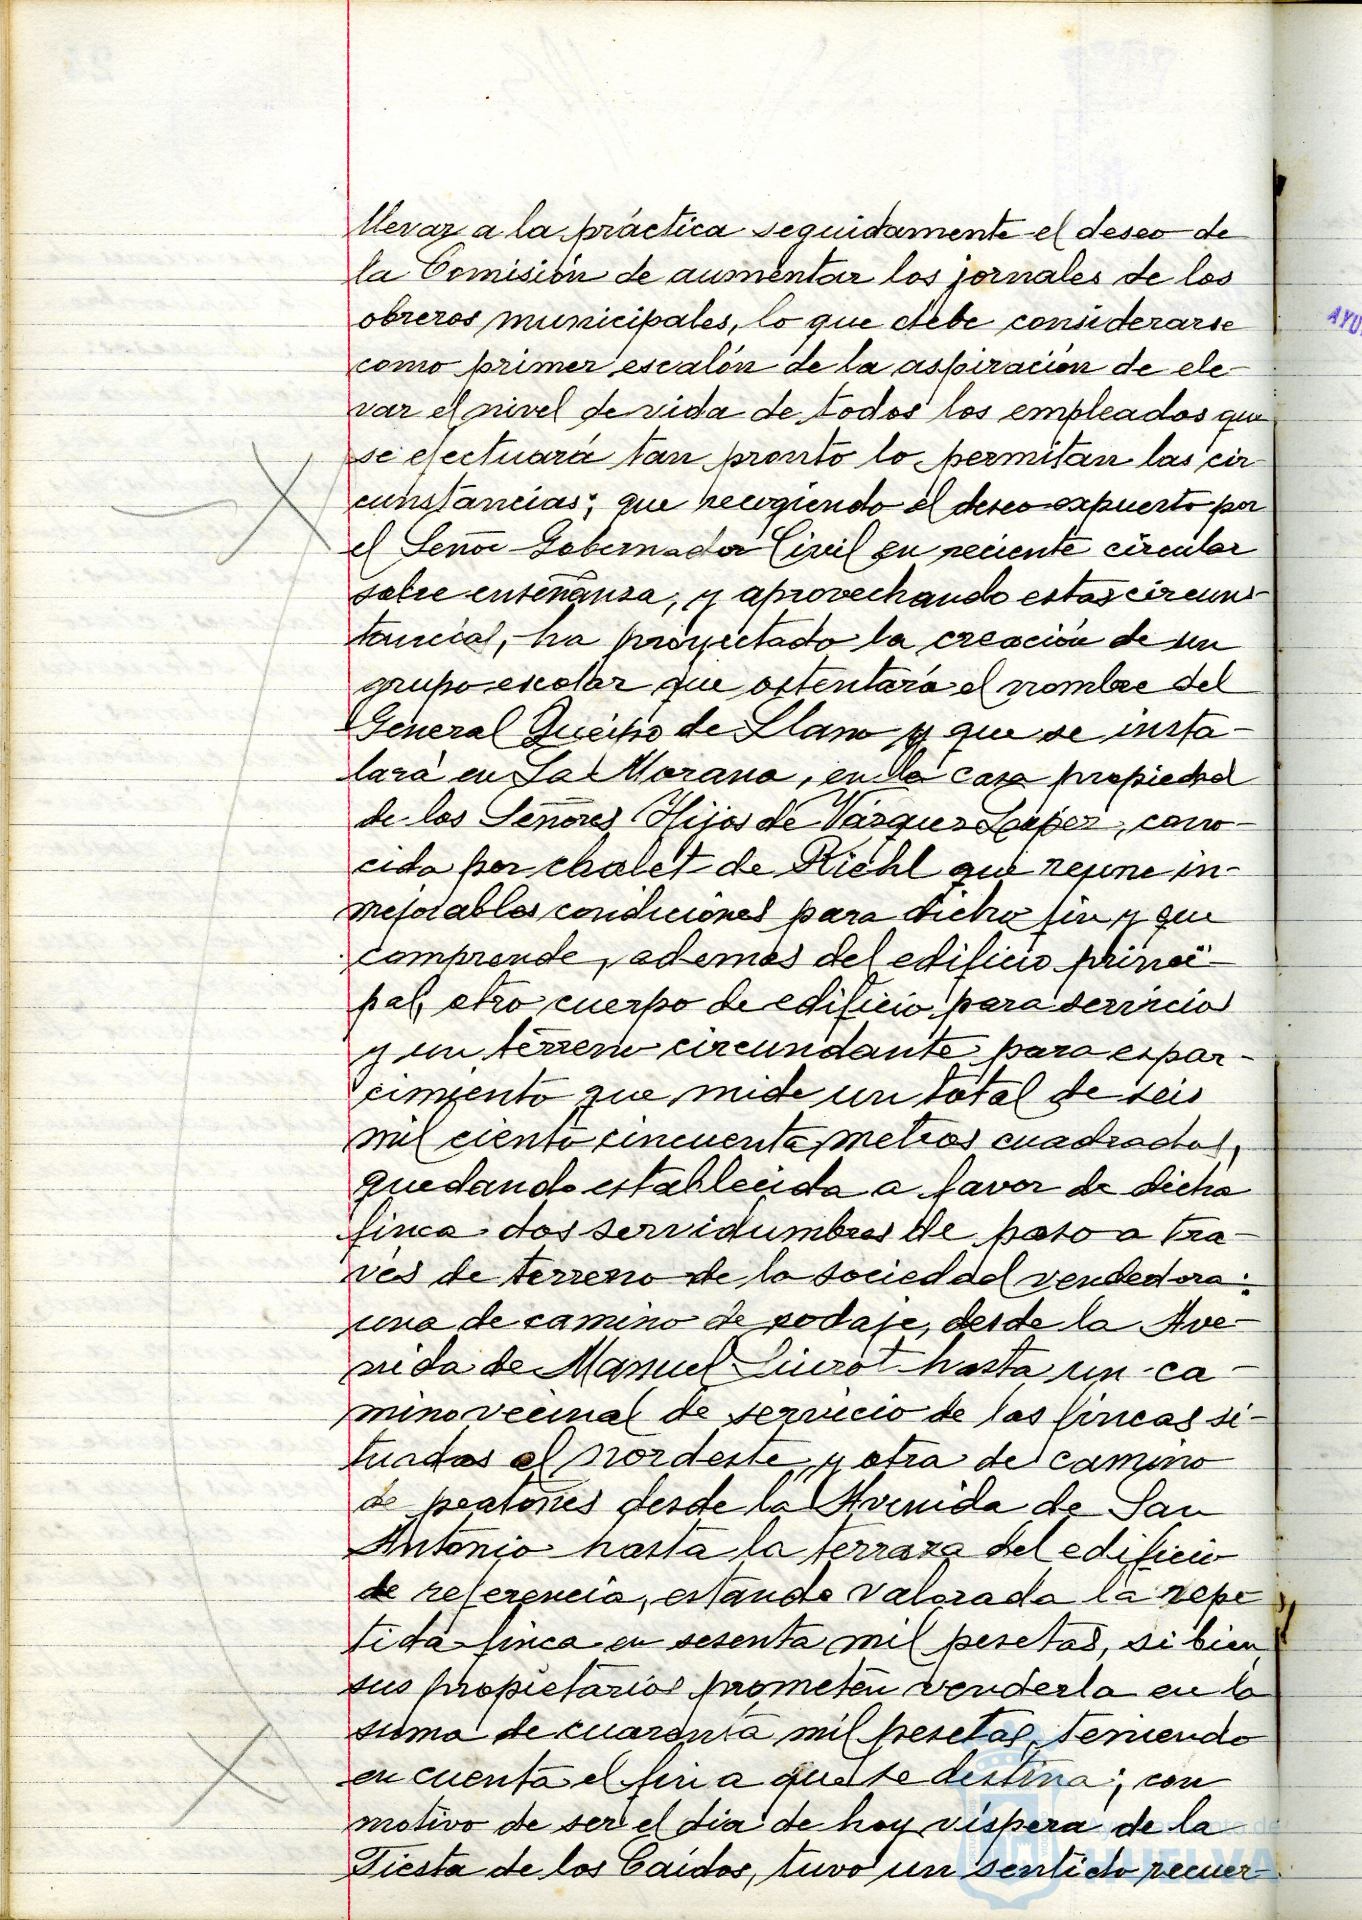 llevar a la práctica seguidamente el deseo de
la Comisión de aumentar los jornales de los
obreros municipales, lo que debe considerarse
como primer escalón de la aspiración de ele-
var el nivel de vida de todos los empleados que
se efectuará tan pronto lo permitan las cir-
cunstancias; que recogiendo el deseo expuesto por
el Señor Gobernador Civil en reciente circular
sobre enseñanza, y aprovechando estas circuns-
tancias, ha proyectado la creación de un
grupo escolar que ostentará el nombre del
General Queipo de Llano y que se insta-
lará en La Morana, en la casa propiedad
de los Señores Hijos de Vázquez López, cono-
cida por chalet de Riehl que reune in-
mejorables condiciones para dicho fin y que
comprende, ademas del edificio princi-
pal, otro cuerpo de edificio para servicios
y un terreno circundante para espar-
cimiento que mide un total de seis
mil ciento cincuenta metros cuadrados,
quedando establecida a favor de dicha
finca dos servidumbres de paso a tra-
vés de terreno de la sociedad vendedora:
una de camino de rodaje, desde la Ave-
nida de Manuel Siurot hasta un ca-
mino vecinal de servicio de las fincas si-
tuadas al nordeste y otra de camino
de peatones desde la Avenida de San
Antonio hasta la terraza del edificio
de referencia, estando valorada la repe-
tida finca en sesenta mil pesetas, si bien
sus propietarios prometen venderla en la
suma de cuarenta mil pesetas, teniendo
en cuenta el fin a que se destina; con
motivo de ser el dia de hoy víspera de la
Fiesta de los Caídos, tuvo un sentido recuer-
AYU
Ayuntamiento de
HUELVA